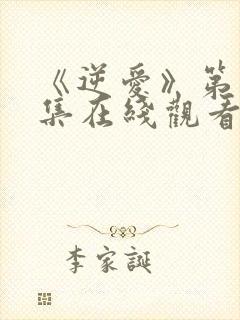 《逆愛》第
集在綫觀看
李家誕